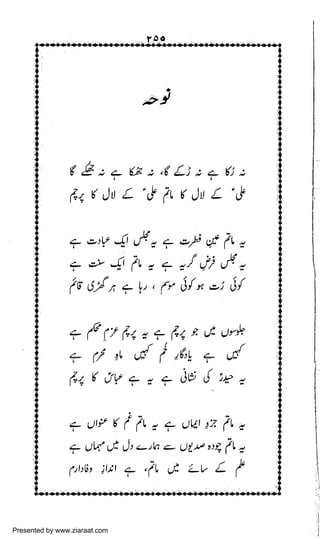 ۲۵۵
نوحہ
نہ رُکا ہے نہ رُکے گا، نہ جھکا ہے نہ جھکے گا
علیؑ کے لال کا ماتم علیؑ کے لال کا پرچم
یہ ماتم عین فطرت ہے یہ مجلس ایک عبادت ہے
یہ مجلس فرضِ گریہ ہے یہ ماتم ایک سنت ہے
کوئی رُت ہو کوئی موسم، رہا ہے ہر گھڑی قائم
جلوسوں میں جو پرچم ہے یہ پرچم عزمِ محکم ہے
کہیں ہے یادگارِ غم کہیں ماہِ محرم ہے
یہ حیدرؑ کی نشانی ہے یہ ہے عباسؑ کا پرچم
یہ ماتم جزوِ ایماں ہے یہ ماتم غم کا عنواں ہے
یہ ماتم چودہ صدیوں سے ہمارے دل میں مہماں ہے
علم کے سائے میں ماتم، ہے اندازِ وفادارم
Presented by www.ziaraat.com